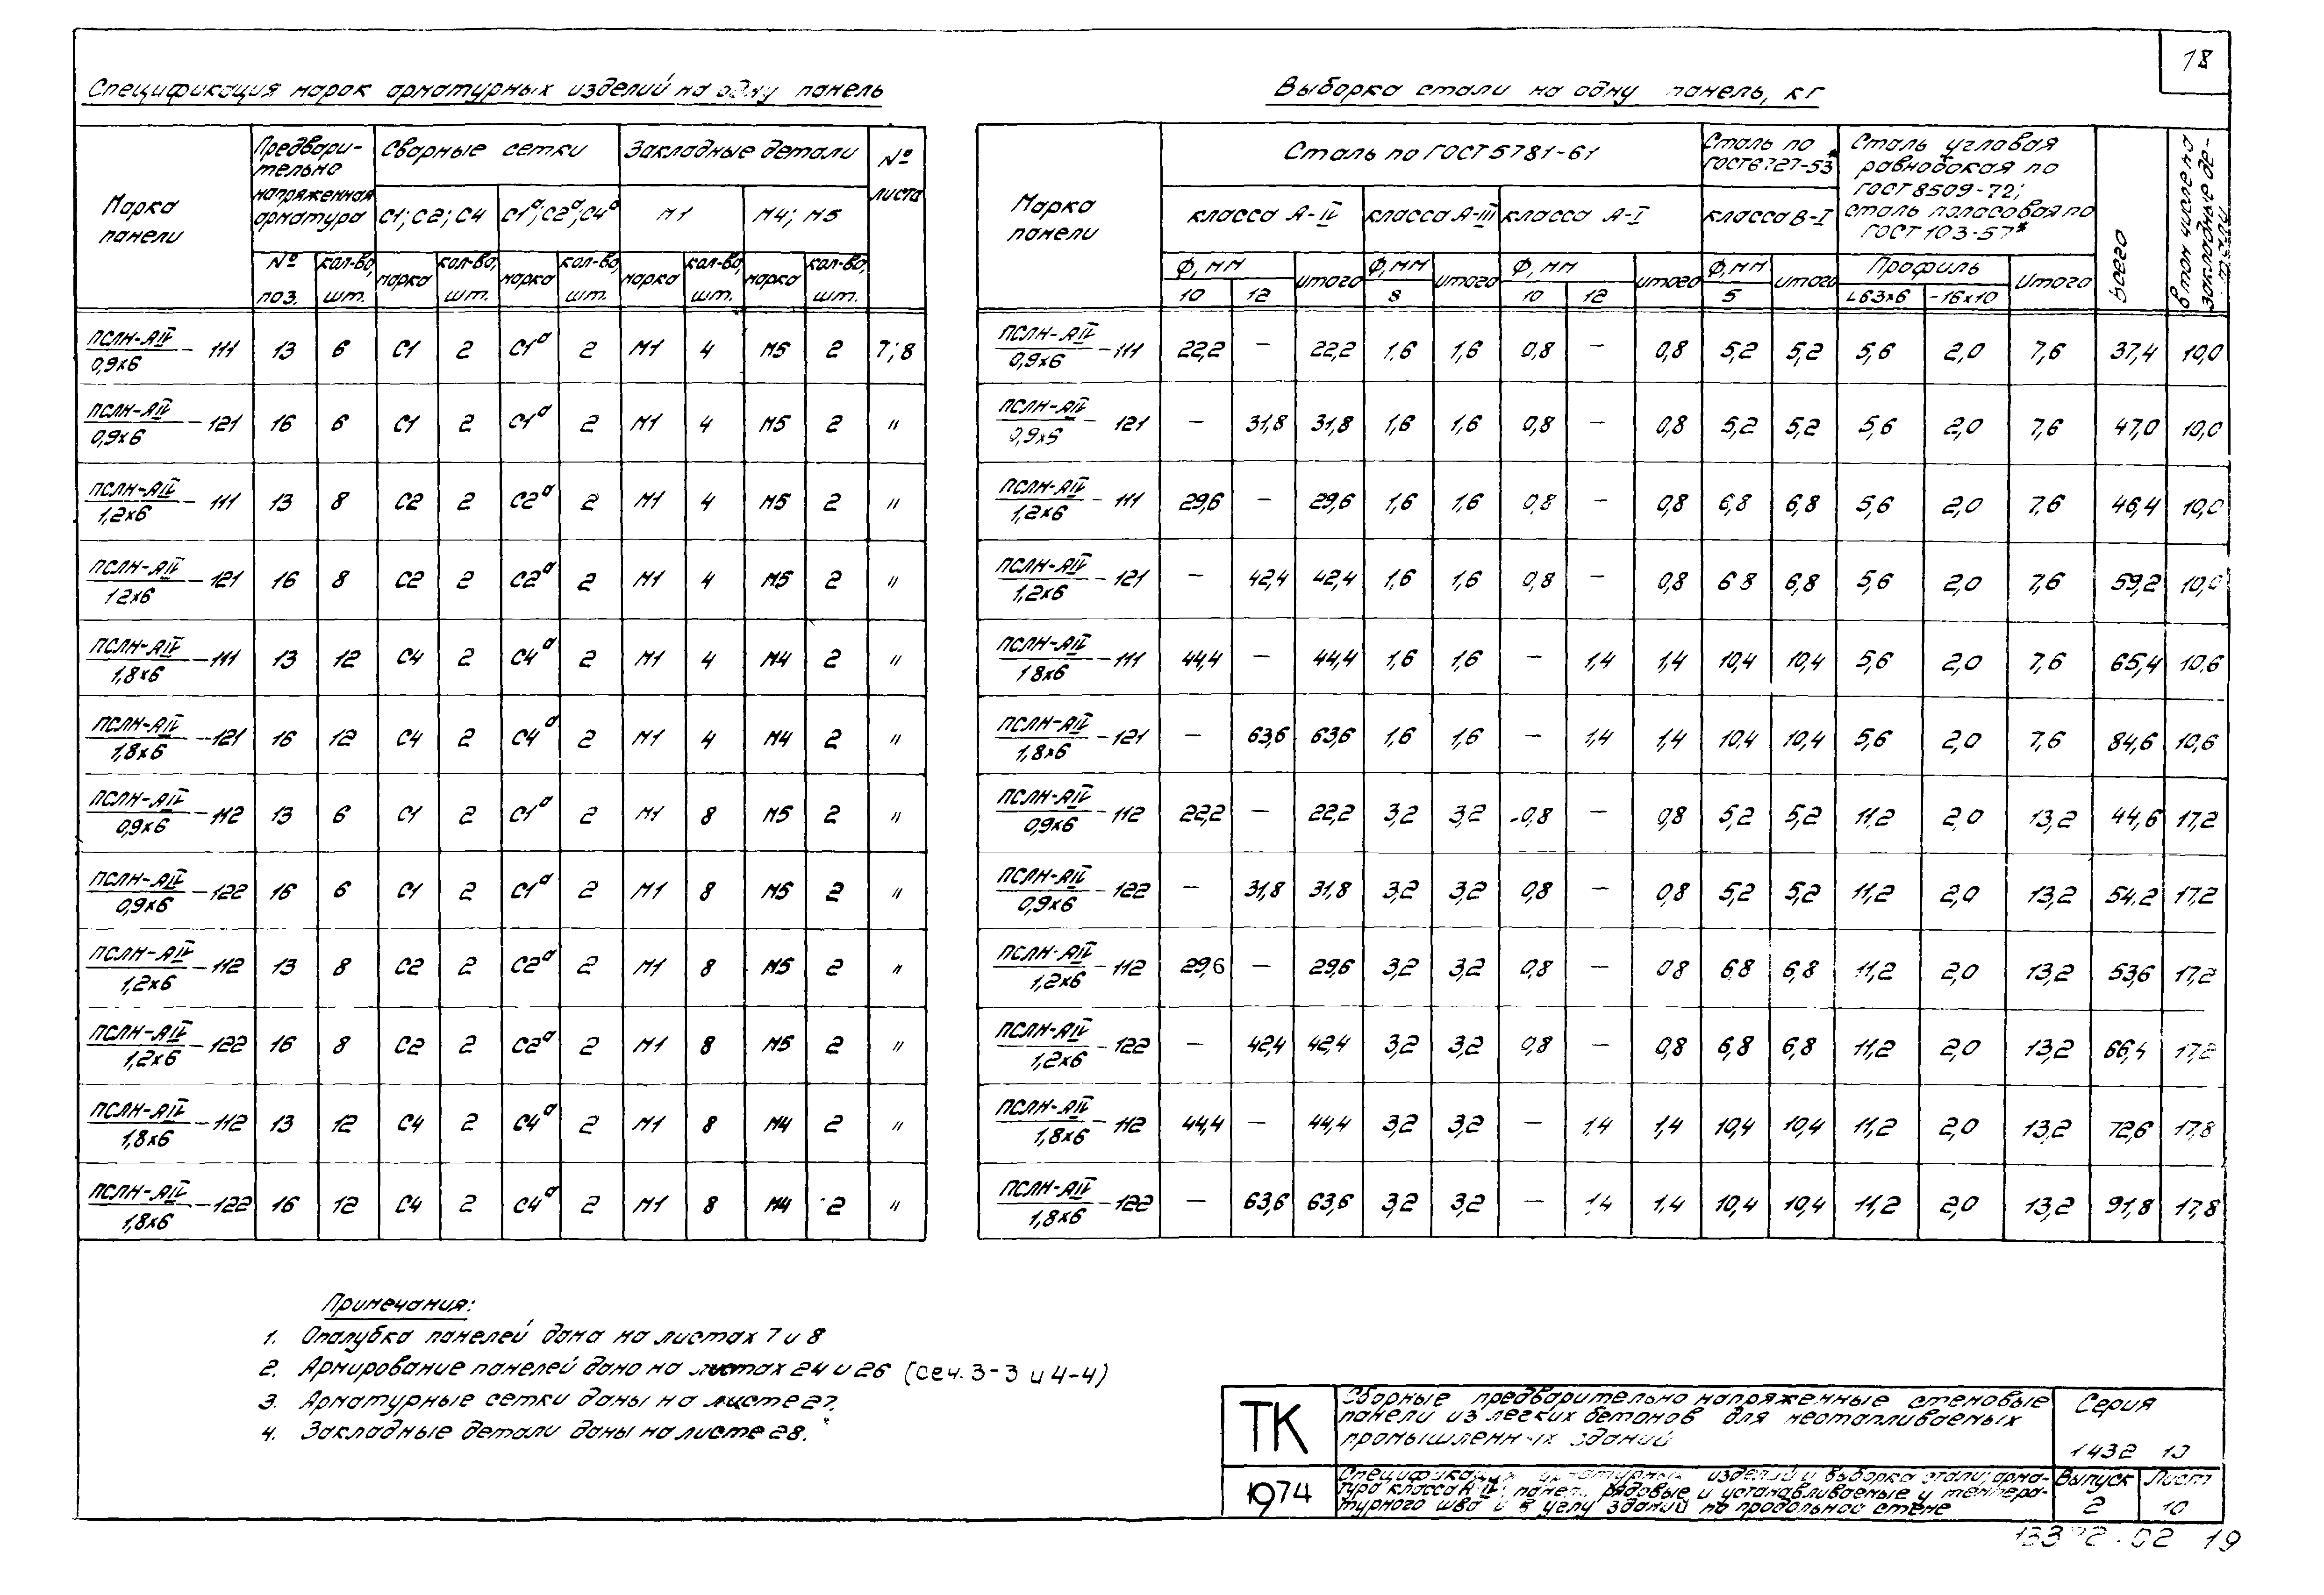 18
Спецификация марок арматурных изделий на одну панель
Марка панели | Предварительно напряженная арматура | Сварные сетки | Закладные детали | № листа
С1; С2; С4 | С1ª; С2ª; С4ª | М1 | М4; М5
№ поз. | кол-во, шт. | марка | кол-во, шт. | марка | кол-во, шт. | марка | кол-во, шт. | марка | кол-во, шт.
ПСЛН-АIV/0,9х6 - 111 | 13 | 6 | С1 | 2 | С1ª | 2 | М1 | 4 | М5 | 2 | 7; 8
ПСЛН-АIV/0,9х6 - 121 | 16 | 6 | С1 | 2 | С1ª | 2 | М1 | 4 | М5 | 2 | "
ПСЛН-АIV/1,2х6 - 111 | 13 | 8 | С2 | 2 | С2ª | 2 | М1 | 4 | М5 | 2 | "
ПСЛН-АIV/1 2х6 - 121 | 16 | 8 | С2 | 2 | С2ª | 2 | М1 | 4 | М5 | 2 | "
ПСЛН-АIV/1,8х6 - 111 | 13 | 12 | С4 | 2 | С4ª | 2 | М1 | 4 | М4 | 2 | "
ПСЛН-АIV/1,8х6 - 121 | 16 | 12 | С4 | 2 | С4ª | 2 | М1 | 4 | М4 | 2 | "
ПСЛН-АIV/0,9х6 - 112 | 13 | 6 | С1 | 2 | С1ª | 2 | М1 | 8 | М5 | 2 | "
ПСЛН-АIV/0,9х6 - 122 | 16 | 6 | С1 | 2 | С1ª | 2 | М1 | 8 | М5 | 2 | "
ПСЛН-АIV/1,2х6 - 112 | 13 | 8 | С2 | 2 | С2ª | 2 | М1 | 8 | М5 | 2 | "
ПСЛН-АIV/1,2х6 - 122 | 16 | 8 | С2 | 2 | С2ª | 2 | М1 | 8 | М5 | 2 | "
ПСЛН-АIV/1,8х6 - 112 | 13 | 12 | С4 | 2 | С4ª | 2 | М1 | 8 | М4 | 2 | "
ПСЛН-АIV/1,8х6 - 122 | 16 | 12 | С4 | 2 | С4ª | 2 | М1 | 8 | М4 | 2 | "
Выборка стали на одну панель, кг
Марка панели | Сталь по ГОСТ 5781-61 | Сталь по ГОСТ 6727-53* | Сталь угловая равнобокая по ГОСТ 8509-72; сталь полосовая по ГОСТ 103-57* | Всего | В том числе на закладные детали
класса А-IV | класса А-III | класса А-I | класса В-I
Ф, мм | Итого | Ф, мм | Итого | Ф, мм | Итого | Ф, мм | Итого | Профиль | Итого
10 | 12 | 8 | 10 | 12 | 5 | L63х6 | -16х10
ПСЛН-АIV/0,9х6 - 111 | 22,2 | — | 22,2 | 1,6 | 1,6 | 0,8 | — | 0,8 | 5,2 | 5,2 | 5,6 | 2,0 | 7,6 | 37,4 | 10,0
ПСЛН-АIV/0,9х6 - 121 | — | 31,8 | 31,8 | 1,6 | 1,6 | 0,8 | — | 0,8 | 5,2 | 5,2 | 5,6 | 2,0 | 7,6 | 47,0 | 10,0
ПСЛН-АIV/1,2х6 - 111 | 29,6 | — | 29,6 | 1,6 | 1,6 | 0,8 | — | 0,8 | 6,8 | 6,8 | 5,6 | 2,0 | 7,6 | 46,4 | 10,0
ПСЛН-АIV/1,2х6 - 121 | — | 42,4 | 42,4 | 1,6 | 1,6 | 0,8 | — | 0,8 | 6 8 | 6,8 | 5,6 | 2,0 | 7,6 | 59,2 | 10,0
ПСЛН-АIV/1 8х6 - 111 | 44,4 | — | 44,4 | 1,6 | 1,6 | — | 1,4 | 1,4 | 10,4 | 10,4 | 5,6 | 2,0 | 7,6 | 65,4 | 10,6
ПСЛН-АIV/1,8х6 - 121 | — | 63,6 | 63,6 | 1,6 | 1,6 | — | 1,4 | 1,4 | 10,4 | 10,4 | 5,6 | 2,0 | 7,6 | 84,6 | 10,6
ПСЛН-АIV/0,9х6 - 112 | 22,2 | — | 22,2 | 3,2 | 3,2 | 0,8 | — | 0,8 | 5,2 | 5,2 | 11,2 | 2,0 | 13,2 | 44,6 | 17,2
ПСЛН-АIV/0,9х6 - 122 | — | 31,8 | 31,8 | 3,2 | 3,2 | 0,8 | — | 0,8 | 5,2 | 5,2 | 11,2 | 2,0 | 13,2 | 54,2 | 17,2
ПСЛН-АIV/1,2х6 - 112 | 29,6 | — | 29,6 | 3,2 | 3,2 | 0,8 | — | 0 8 | 6,8 | 6,8 | 11,2 | 2,0 | 13,2 | 53,6 | 17,2
ПСЛН-АIV/1,2х6 - 122 | — | 42,4 | 42,4 | 3,2 | 3,2 | 0,8 | — | 0,8 | 6,8 | 6,8 | 11,2 | 2,0 | 13,2 | 66,4 | 17,2
ПСЛН-АIV/1,8х6 - 112 | 44,4 | — | 44,4 | 3,2 | 3,2 | — | 1,4 | 1,4 | 10,4 | 10,4 | 11,2 | 2,0 | 13,2 | 72,6 | 17,8
ПСЛН-АIV/1,8х6 - 122 | — | 63,6 | 63,6 | 3,2 | 3,2 | — | 1,4 | 1,4 | 10,4 | 10,4 | 11,2 | 2,0 | 13,2 | 91,8 | 17,8
Примечания:
1. Опалубка панелей дана на листах 7 и 8
2. Армирование панелей дано на листах 24 и 26 (сеч. 3-3 и 4-4)
3. Арматурные сетки даны на листе 27.
4. Закладные детали даны на листе 28.
ТК
1974
Сборные предварительно напряженные стеновые
панели из легких бетонов для неотапливаемых
промышленных зданий
Серия
1432 10
Спецификация арматурных изделий и выборка стали; арма-
тура класса А-IV; панели рядовые и устанавливаемые у темпера-
турного шва и в углу зданий по продольной стене
Выпуск
2
Лист
10
13372-02 19